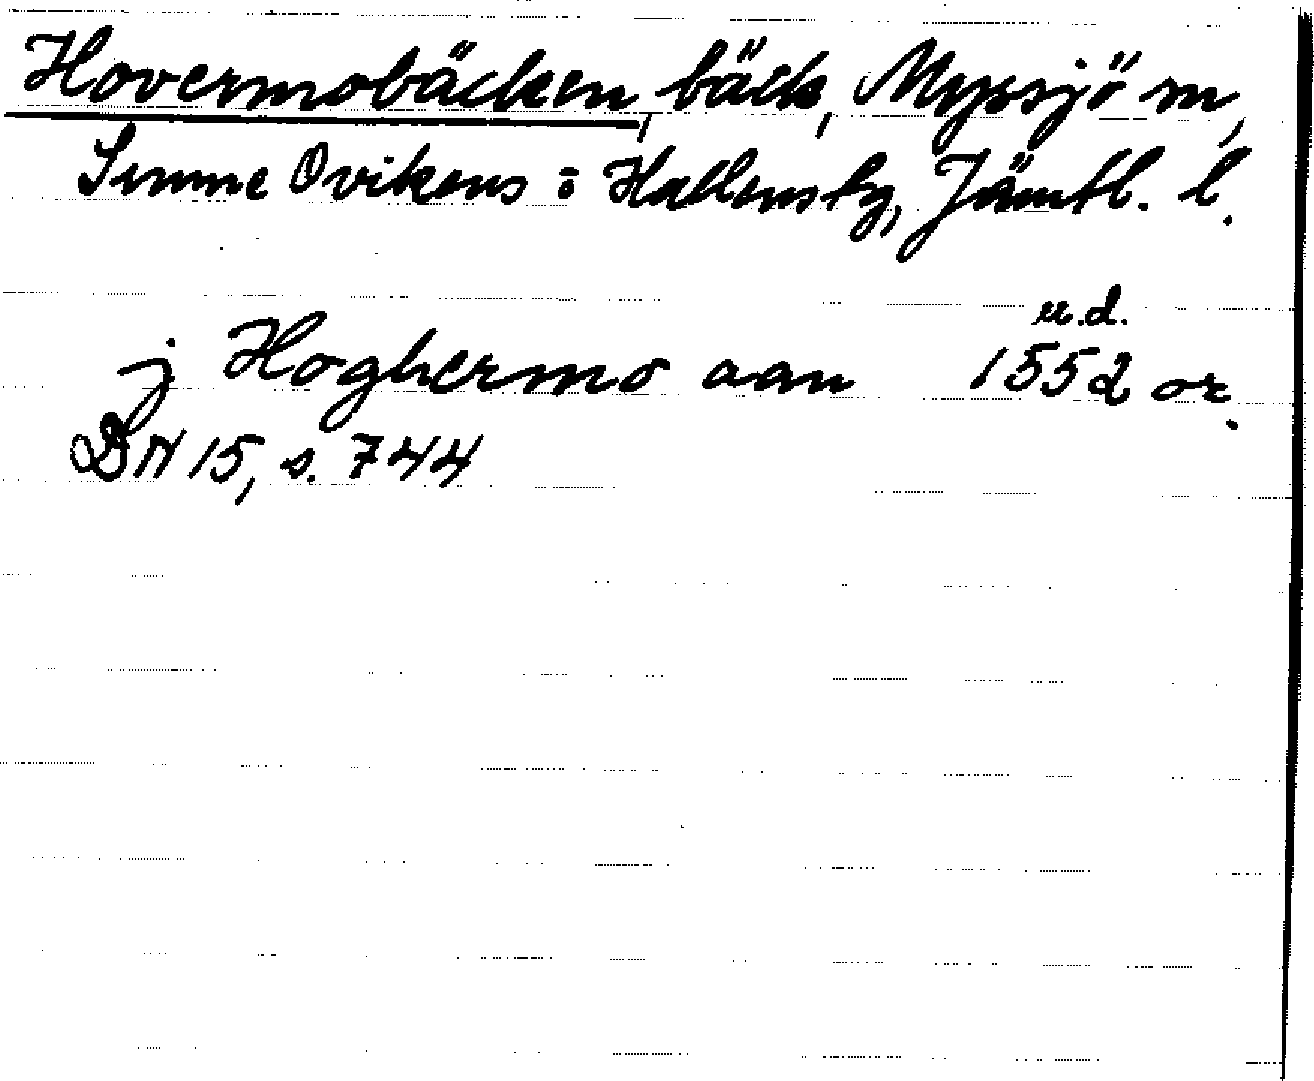 Hovermobäcken, bäck, Myssjö sn,
Sunne Ovikens o Hallens tg, Jämtl. l.
u.d.
j Hoghermo aan 1552 or.
DN 15, s. 744